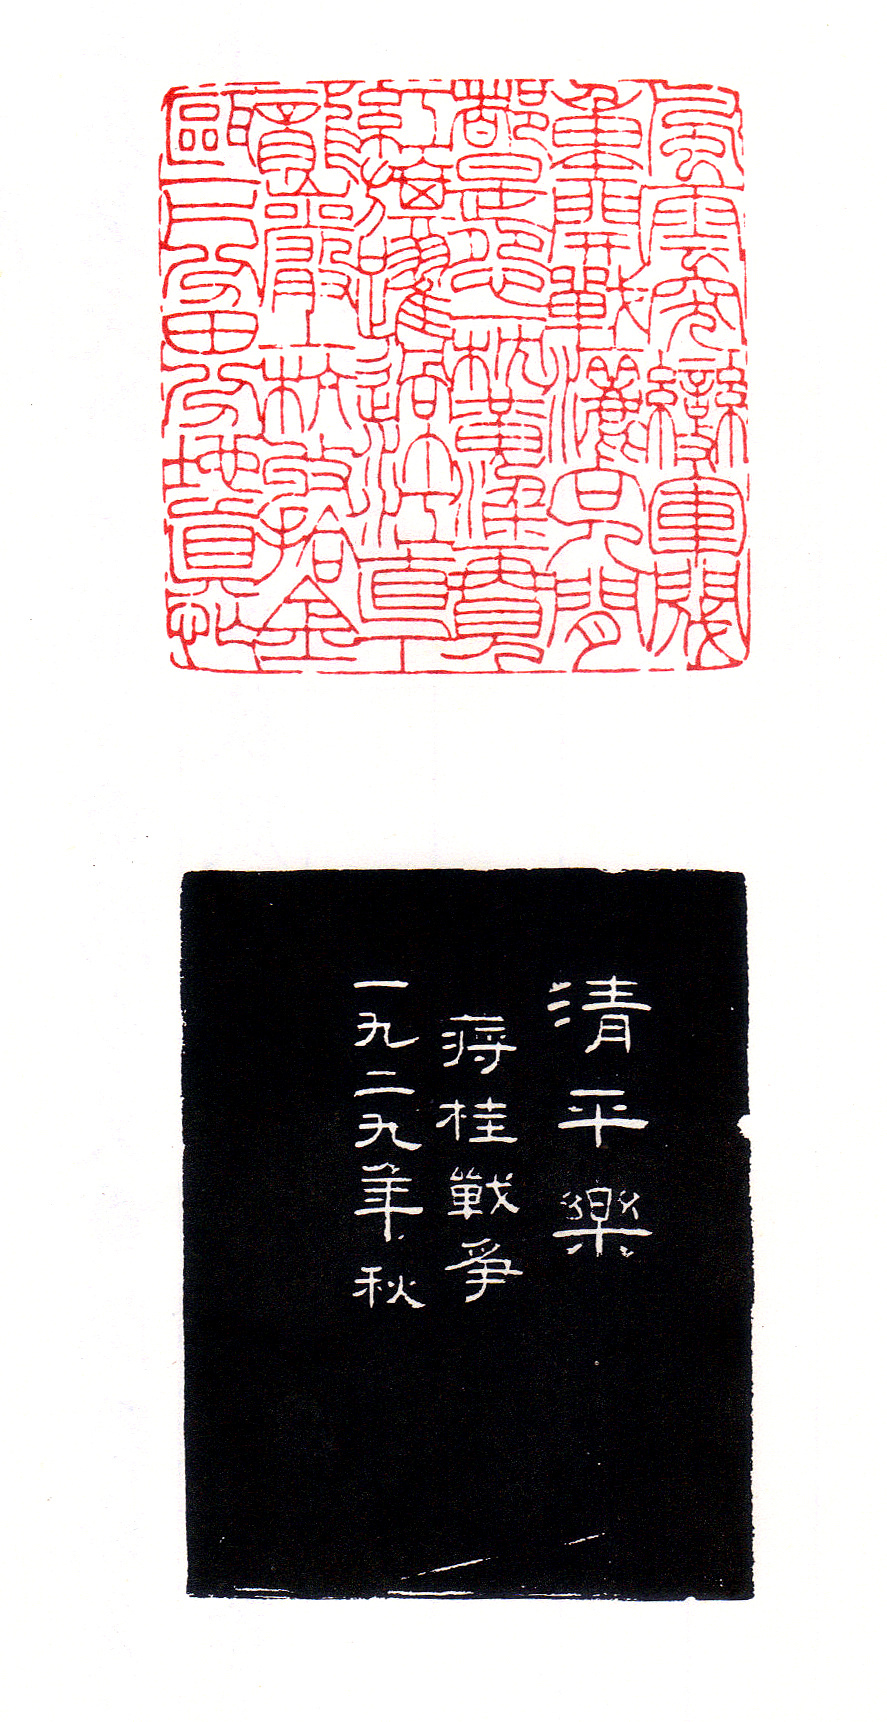 風雲突變軍閥
重開戰灑向人間
都是怨一枕黃粱再現
紅旗躍過汀江直下
龍巖上杭收拾金
甌一片分田分地真忙
清平樂
蔣桂戰爭
一九二九年秋